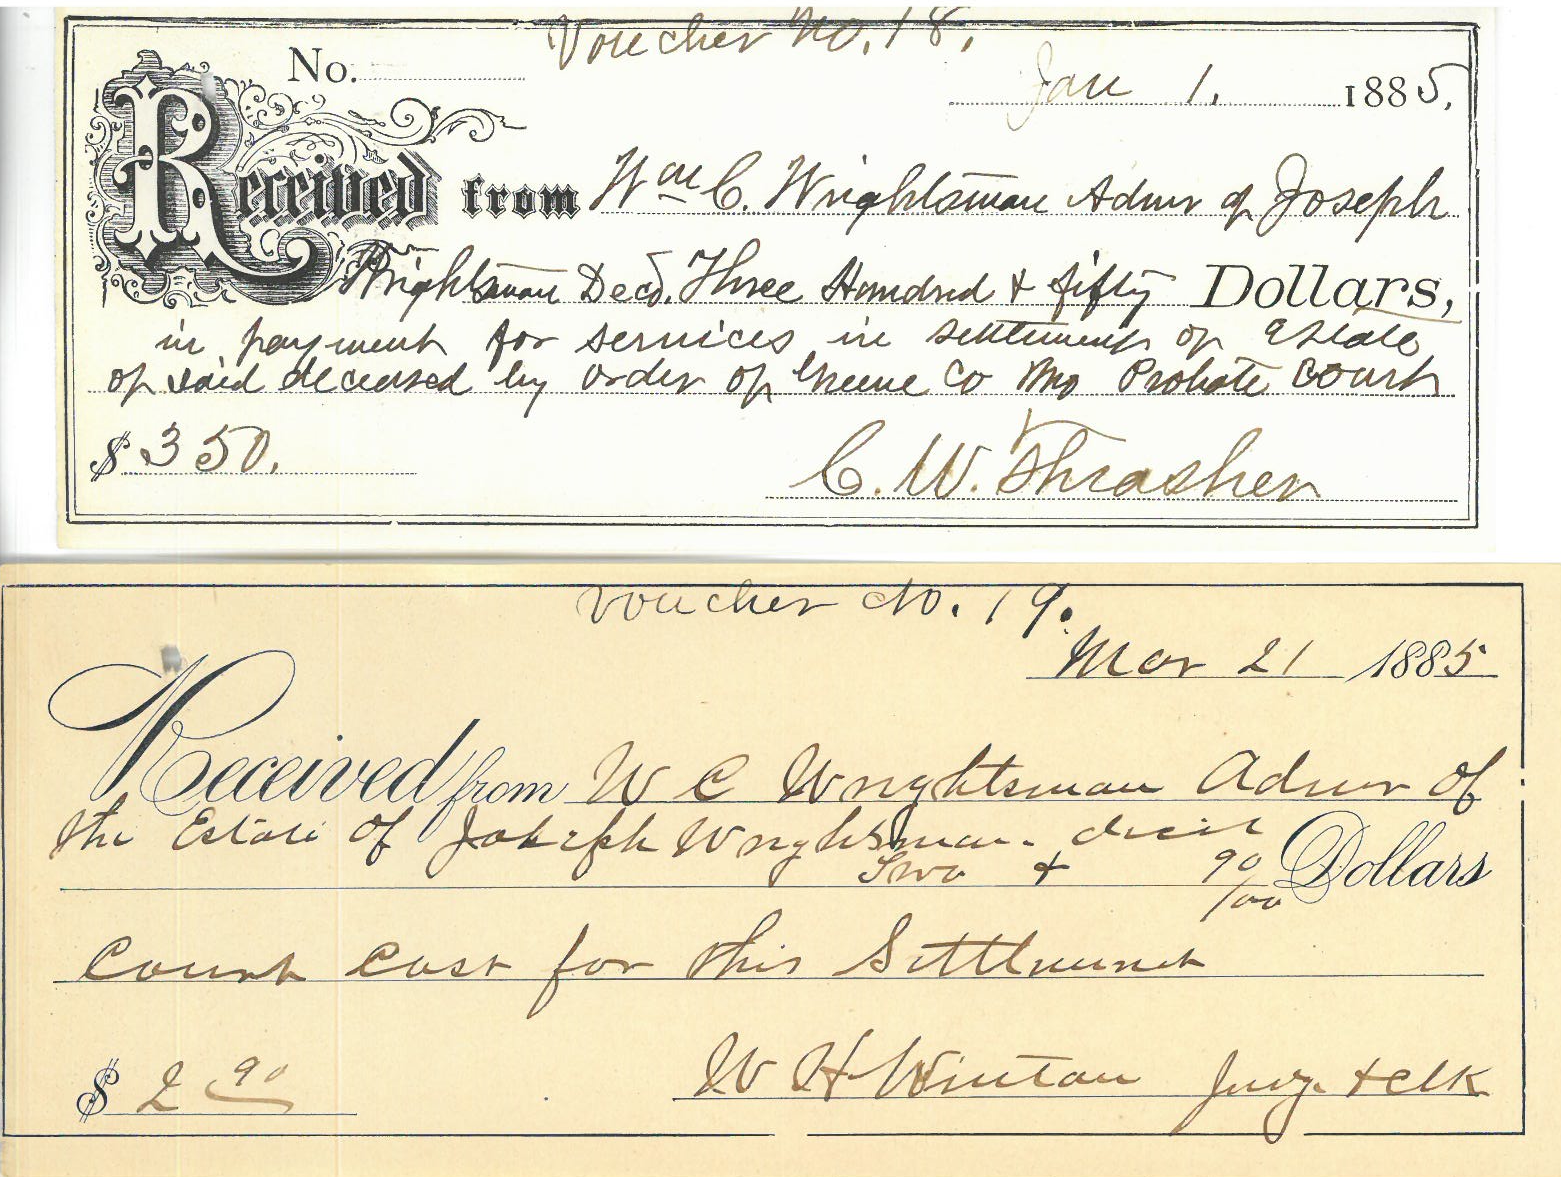 Voucher No. 18.
No.
Jan 1. 1885,
Received from Wm C. Wrightsman Admr of Joseph
Wrightsman Decd. Three Hundred & fifty Dollars,
in payment for services in settlement of Estate
of said deceased by order of Greene Co Mo Probate Court
$ 350.
C. W. Thrasher
Voucher No. 19.
Mar 21 1885
Received from W C Wrightsman Admr of
the Estate of Joseph Wrightsman
Two & 90/100 Dollars
Court cost for this Settlement
$ 2 90
W H Winton Judge & Clk